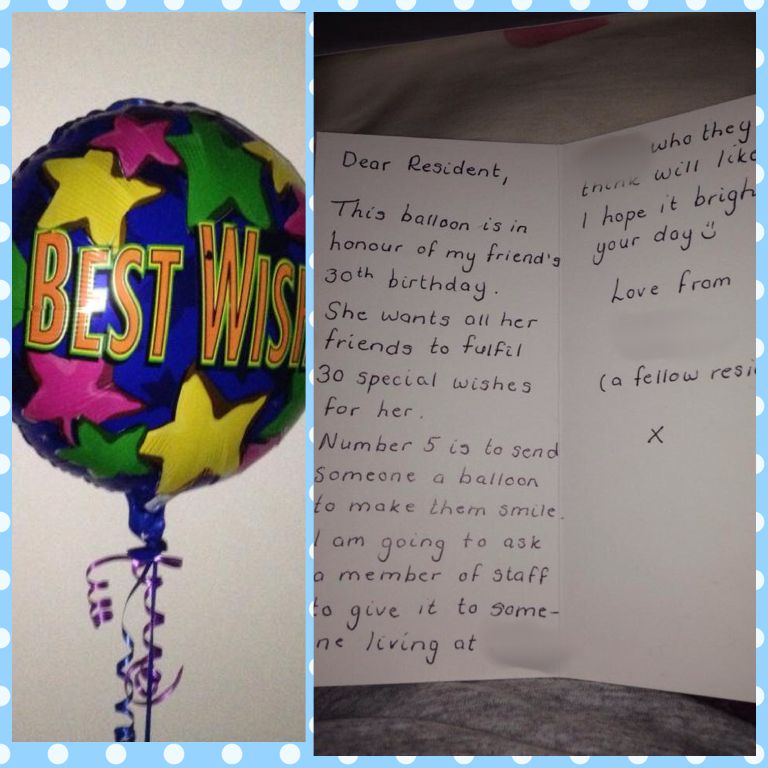 BEST WISH
Dear Resident,
This balloon is in
honour of my friend's
30th birthday.
She wants all her
friends to fulfil
30 special wishes
for her.
Number 5 is to send
someone a balloon
to make them smile.
I am going to ask
a member of staff
to give it to some-
ne living at
who they
think will like
I hope it brigh
your day
Love from
(a fellow resi
X